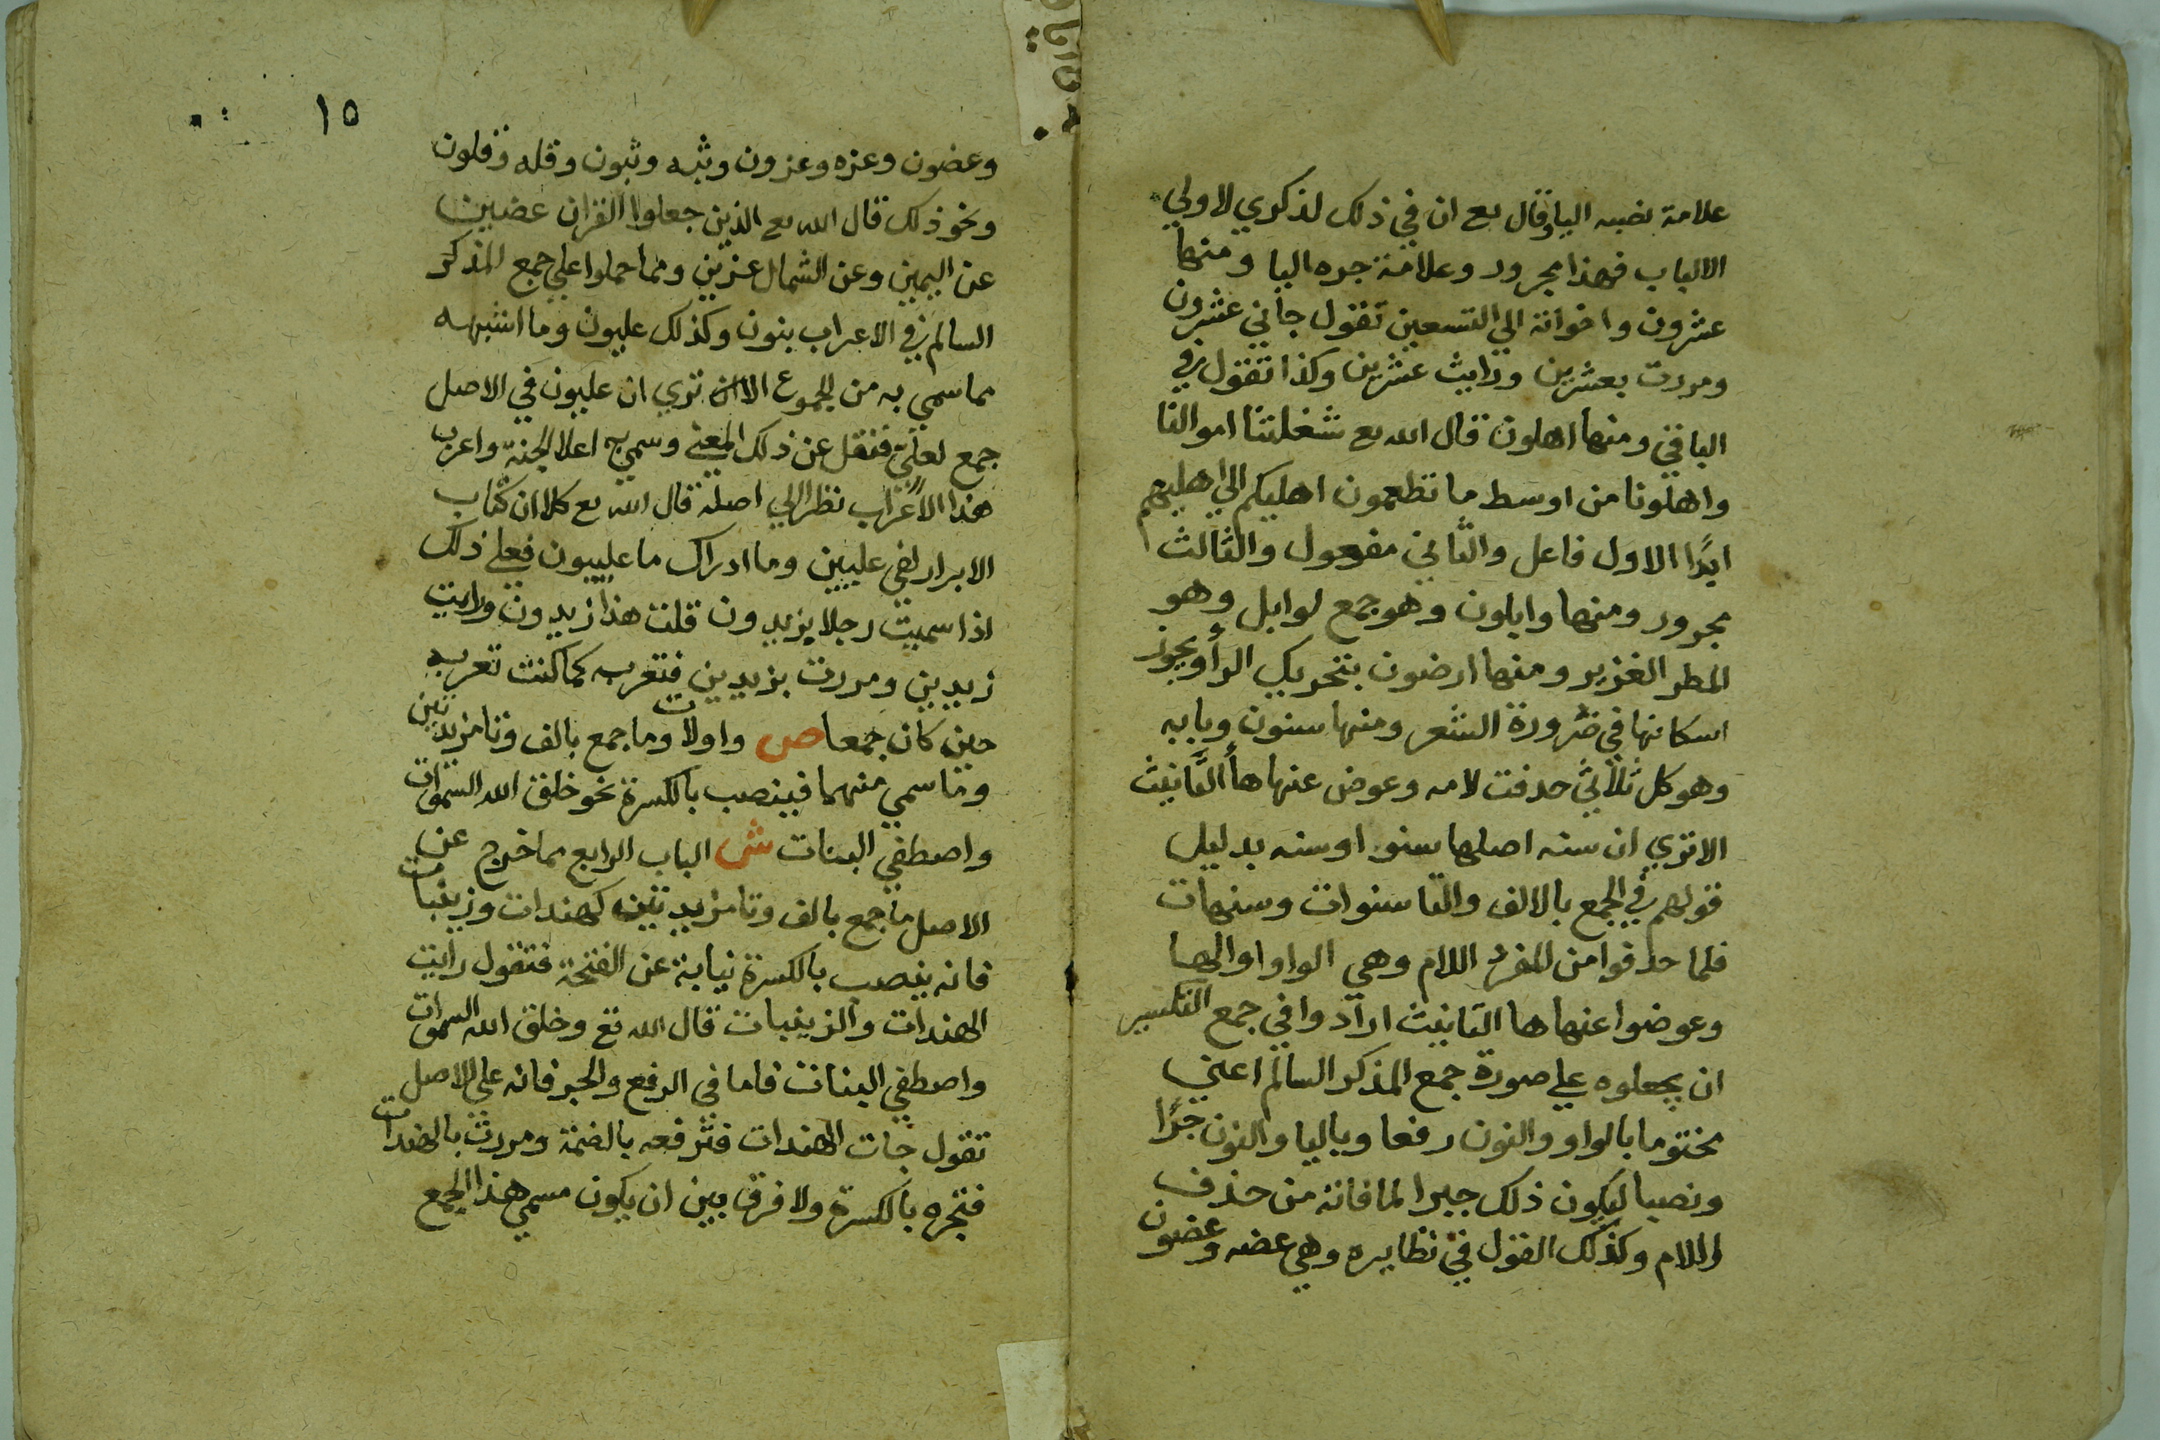 علامة نصبه اليا وقال تع ان في ذلك لذكري لاولي
الالباب فهذا مجرور وعلامة جره اليا ومنها
عشرون واخواته الي التسعين تقول جاني عشرون
ومررت بعشرين ورايت عشرين وكذا تقول في
الباقي ومنها اهلون قال الله تع شغلتنا اموالنا
واهلونا من اوسط ما تطعمون اهليكم الي اهليهم
ابدًا الاول فاعل والثاني مفعول والثالث
مجرور ومنها وابلون وهو جمع لوابل وهو
المطر الغزير ومنها ارضون بتحريك الرأ ويجوز
اسكانها في ضرورة الشعر ومنها سنون وبابه
وهو كل ثلاثي حذفت لامه وعوض عنها هأ التَّانيث
الا تري ان سنه اصلها سنو او سنه بدليل
قولهم في الجمع بالالف والتا سنوات وسنهات
فلما حذفوا من المفرد اللام وهي الواو او الها
وعوضوا عنها ها التانيث ارادوا في جمع التكسير
ان يجعلوه علي صورة جمع المذكر السالم اعني
مختوما بالواو والنون رفعا وباليا والنون جرًا
ونصبا ليكون ذلك جبرا لما فاته من حذف
اللام وكذلك القول في نظايره وهي عضه وعضون
١٥
وعضون وعزه وعزون وثبه وثبون وقله وقلون
ونحو ذلك قال الله تع الذين جعلوا القران عضين
عن اليمين وعن الشمال عزين ومما حملوا علي جمع المذكر
السالم في الاعراب بنون وكذلك عليون وما اشبهه
مما سمي به من الجموع الا تري ان عليون في الاصل
جمع لعلّيّ فنقل عن ذلك المعني وسمي به اعلا الجنة واعرب
هذا الاعراب نظرا الي اصله قال الله تع كلا ان كتاب
الابرار لفي عليين وما ادراك ما علييون فعلي ذلك
اذا سميت رجلا بزيدون قلت هذا زيدون ورايت
زيدين ومررت بزيدين فتعربه كما كنت تعربه
حين كان جمعا ص واولات وما جمع بالف وتا مزيدتين
وما سمي منهما فينصب بالكسرة نحو خلق الله السموات
واصطفي البنات ش الباب الرابع مما خرج عن
الاصل ما جمع بالف وتا مزيدتين كهندات وزينبات
فانه ينصب بالكسرة نيابة عن الفتحة فتقول رايت
الهندات والزينبات قال الله تع وخلق الله السموات
واصطفي البنات فاما في الرفع والجر فانه علي الاصل
تقول جات الهندات فترفعه بالضمة ومررت بالهندات
فتجره بالكسرة ولا فرق بين ان يكون مسمي هذا الجمع